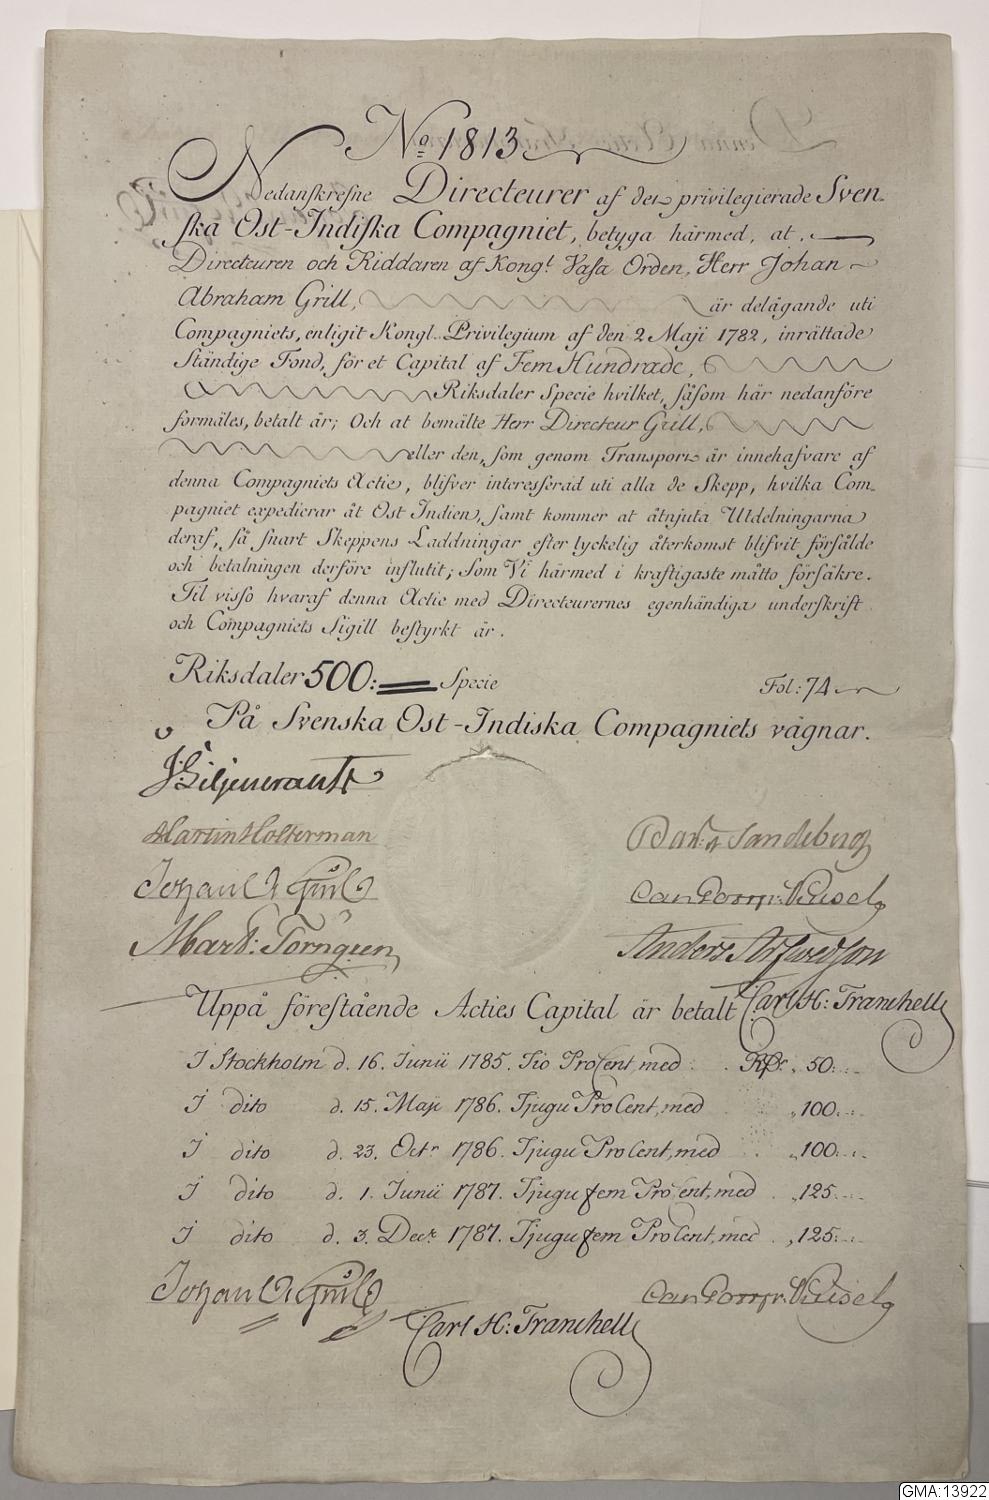 No 1813
Nedanskrefne Directeurer af det privilegierade Sven-
ska Ost-Indiska Compagniet, betyga härmed, at
Directeuren och Riddaren af Kongl. Vasa Orden, Herr Johan
Abraham Grill, är delägande uti
Compagniets, enligit Kongl. Privilegium af den 2 Maji 1782, inrättade
Ständige Fond, för et Capital af Fem Hundrade,
Riksdaler Specie hvilket, såsom här nedanföre
formäles, betalt är; Och at bemälte Herr Directeur Grill,
eller den, som genom Transport är innehafvare af
denna Compagniets Actie, blifver interesserad uti alla de Skepp, hvilka Com-
pagniet expedierar åt Ost Indien, samt kommer at åtnjuta Utdelningarna
deraf, så snart Skeppens Laddningar efter lyckelig återkomst blifvit försålde
och betalningen derföre influtit; Som Vi härmed i kraftigaste måtto försäkre.
Til visso hvaraf denna Actie med Directeurernes egenhändiga underskrift
och Compagniets Sigill bestyrkt är.
Riksdaler 500: Specie Fol: 74
På Svenska Ost-Indiska Compagniets vägnar.
J Liljencrants
Martin Holterman Sandeberg
Johan A Grill
Mart: Törngren Anders Arfwedson
Uppå förestående Acties Capital är betalt Carl H: Tranchell
I Stockholm d. 16. Junii 1785. Tio ProCent, med Rdr. „ 50:
I dito d. 15. Maji 1786. Tjugu ProCent, med „ 100:
I dito d. 23. Octr 1786. Tjugu ProCent, med „ 100:
I dito d. 1. Junii 1787. Tjugufem ProCent, med „ 125:
I dito d. 3. Decr 1787. Tjugufem ProCent, med „ 125:
Johan A Grill
Carl H: Tranchell
GMA:13922